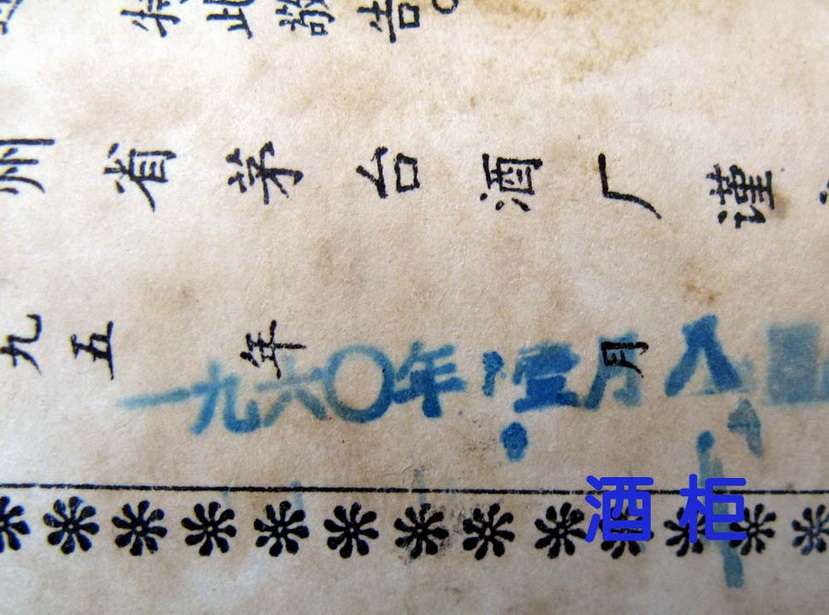 特此敬告。
州省茅台酒厂谨
九五 年 月
一九六〇年 壹月 八
酒柜